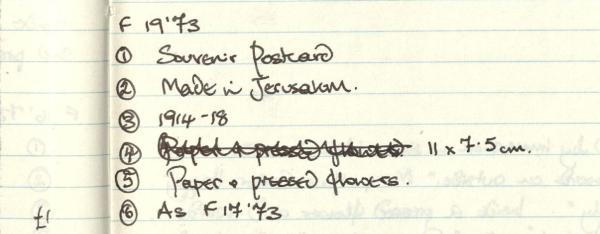 F 19'73
① Souvenir Postcard
② Made in Jerusalem.
③ 1914-18
④ Paper + pressed flowers 11 x 7.5 cm.
⑤ Paper + pressed flowers.
£1 ⑥ As F 17'73